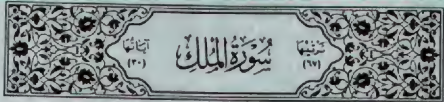 ترتيبها
(٦٧)
سُورَةُ المُلْكِ
آياتها
(٣٠)